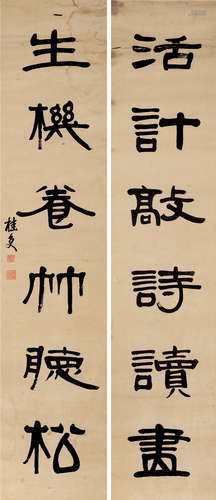 活計敲詩讀畫
生機養竹聽松
桂